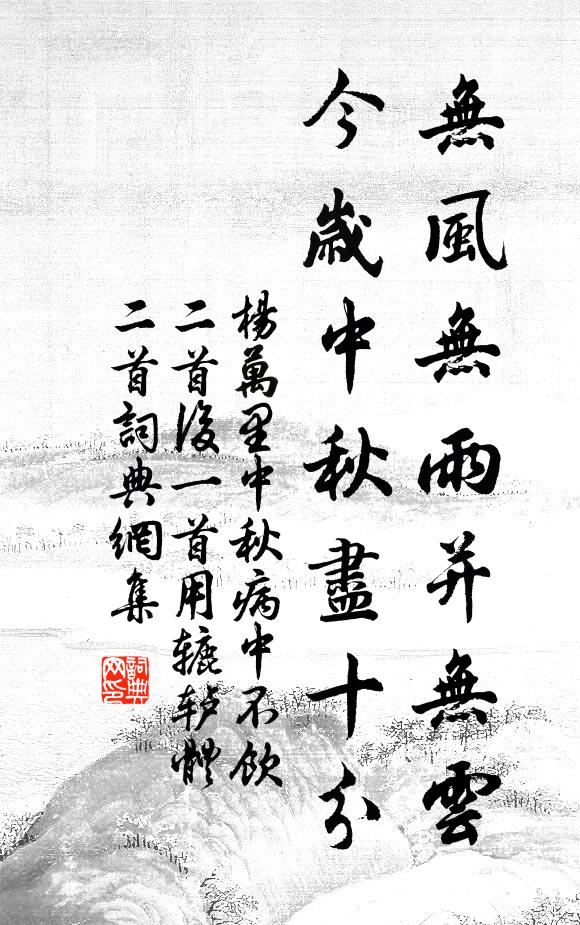 無風無雨并無雲
今歲中秋盡十分
楊萬里中秋病中不飲
二首後一首用辘轳體
二首詞典網集
詞典
网印